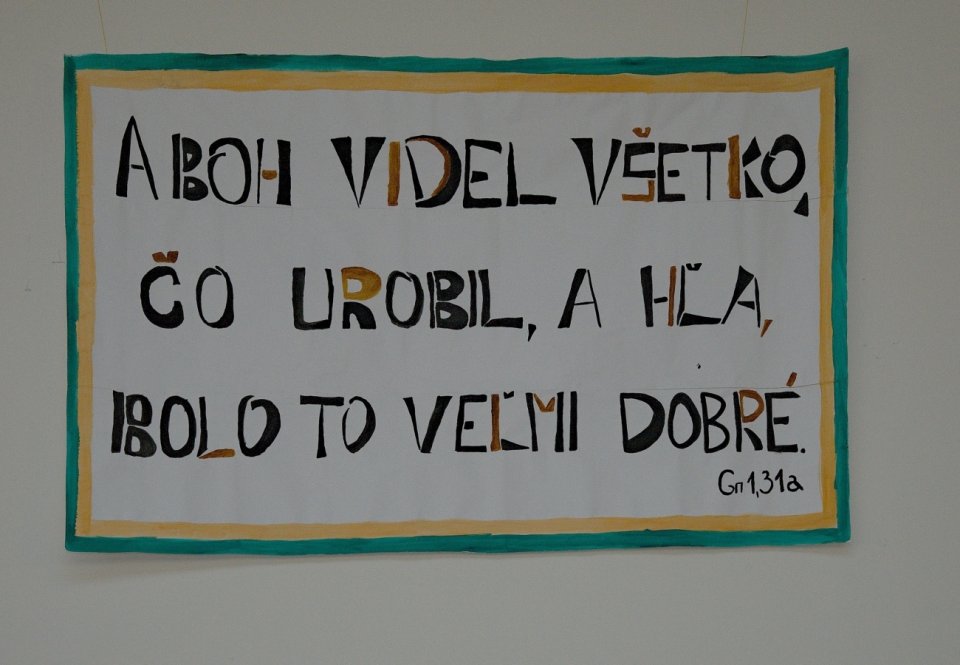 A BOH VIDEL VŠETKO,
ČO UROBIL, A HĽA,
BOLO TO VEĽMI DOBRÉ.
Gn 1,31a